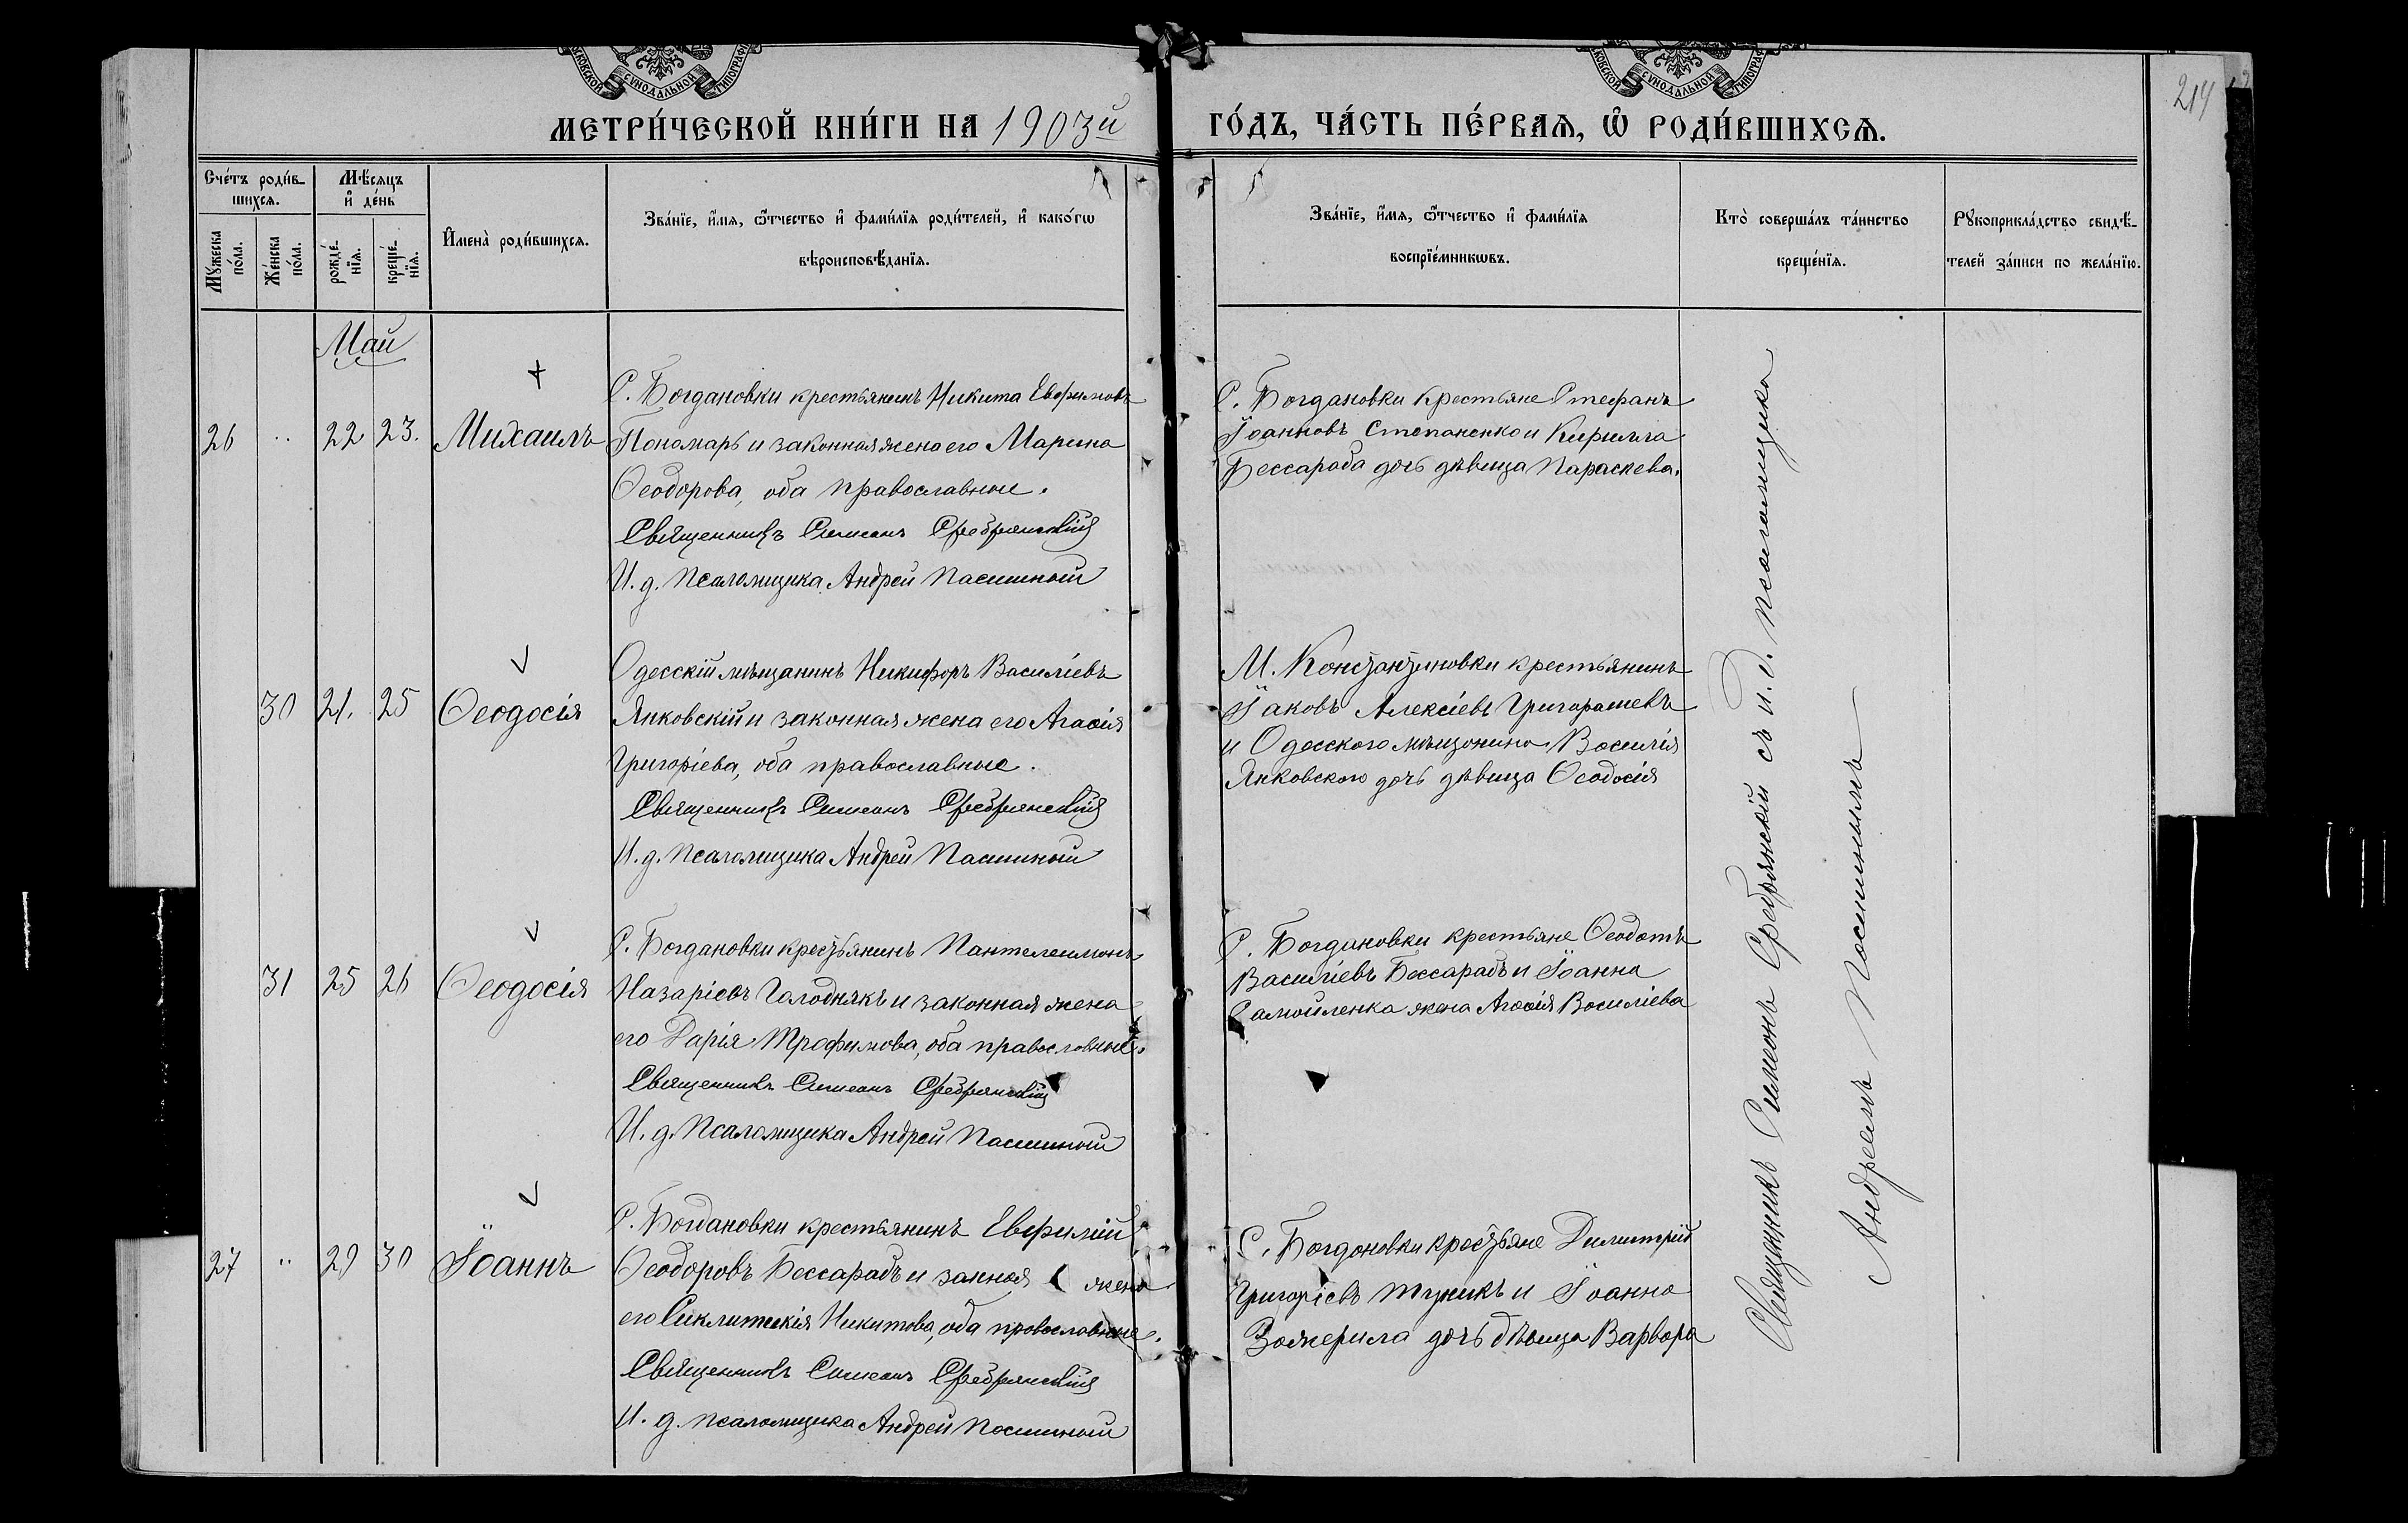 МЕТРИ́ЧЕСКОЙ КНИ́ГИ НА 1903й ГО́ДЪ, ЧА́СТЬ ПЕ́РВАЯ, Ѽ РОДИ́ВШИХСѦ.
214
Сче́тъ роди́в-
шихсѧ.
Мꙋ́жеска
по́ла.
Же́нска
по́ла.
Мѣ́сѧцъ
и҆ де́нь
рожде́-
нїѧ.
креще́-
нїѧ.
И҆мена̀ роди́вшихсѧ.
Зва́нїе, и҆́мѧ, ѻ҆́тчество и҆ фами́лїѧ роди́телей, и҆ како́гѡ
вѣроисповѣ́данїѧ.
Зва́нїе, и҆́мѧ, ѻ҆́тчество и҆ фами́лїѧ
воспрїе́мникѡвъ.
Кто̀ соверша́лъ та́инство
креще́нїѧ.
Рꙋкоприкла́дство свидѣ́-
телей за́писи по жела́нїю.
Май
26 " 22 23. Михаилъ
С. Богдановки крестьянинъ Никита Евфимовъ
Пономарь и законная жена его Марина
Ѳеодорова, оба православные.
Священникъ Симеонъ Сребрянскій
И. д. Псаломщика Андрей Пасишный
С. Богдановки крестьяне Стефанъ
Іоанновъ Степаненко и Кирилла
Бессараба дочь дѣвица Параскева.
30 21. 25 Ѳеодосія
Одесскій мѣщанинъ Никифоръ Василіевъ
Янковскій и законная жена его Агаѳія
Григоріева, оба православные.
Священникъ Симеонъ Сребрянскій
И. д. Псаломщика Андрей Пасишный
М. Константиновки крестьянинъ
Іаковъ Алексіевъ Григорашевъ
и Одесского мѣщанина Василія
Янковского дочь дѣвица Ѳеодосія
31 25 26 Ѳеодосія
С. Богдановки крестьянинъ Пантелеимонъ
Назаріевъ Голоднякъ и законная жена
его Дарія Трофимова, оба православные.
Священникъ Симеонъ Сребрянскій
И. д. Псаломщика Андрей Пасишный
С. Богдановки крестьяне Ѳеодотъ
Василіевъ Бессарабъ и Іоанна
Самойленка жена Агаѳія Василіева
27 " 29 30 Іоаннъ
С. Богдановки крестьянинъ Евфимій
Ѳеодоровъ Бессарабъ и законая жена
его Сиклитикія Никитова, оба православные.
Священникъ Симеонъ Сребрянскій
И. д. псаломщика Андрей Пасишный
С. Богдановки крестьяне Димитрій
Григоріевъ и Іоанна
дочь дѣвица Варвара
Священникъ Симеонъ Сребрянскій съ и. д. псаломщика
Андреемъ Пасишнымъ